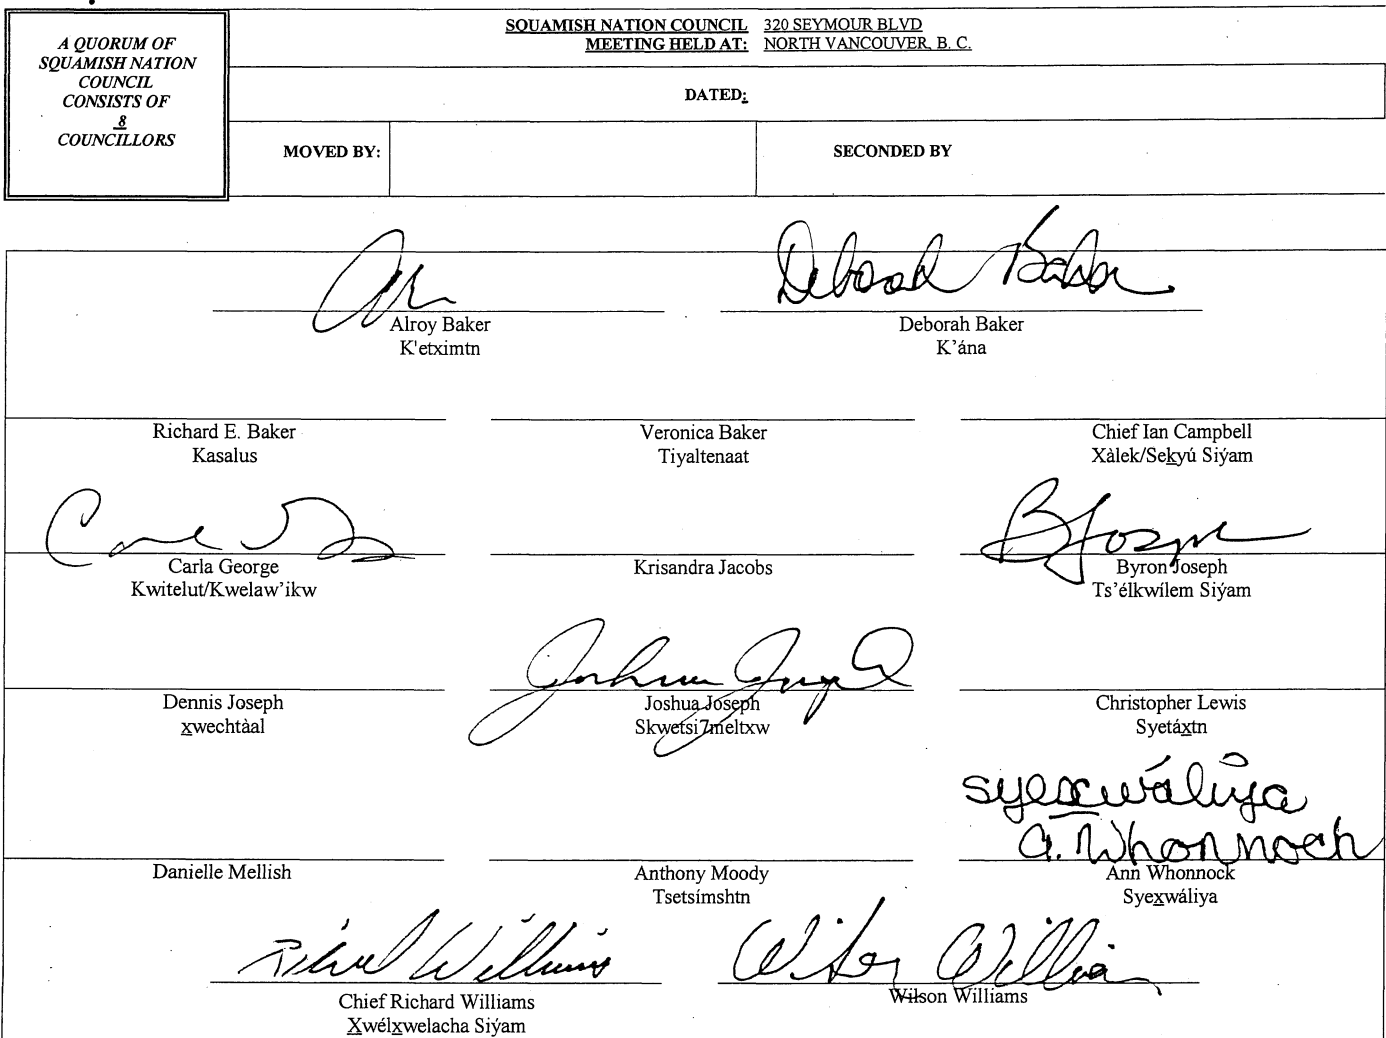 A QUORUM OF
SQUAMISH NATION
COUNCIL
CONSISTS OF
8
COUNCILLORS
SQUAMISH NATION COUNCIL 320 SEYMOUR BLVD
MEETING HELD AT: NORTH VANCOUVER, B. C.
DATED:
MOVED BY:
SECONDED BY
Deborah Baker
Alroy Baker
K'etximtn
Deborah Baker
K’ána
Richard E. Baker
Kasalus
Veronica Baker
Tiyaltenaat
Chief Ian Campbell
Xàlek/Sekyú Siýam
Carla George
Kwitelut/Kwelaw’ikw
Krisandra Jacobs
Byron Joseph
Ts’élkwílem Siýam
Dennis Joseph
xwechtàal
Joshua Joseph
Skwetsi7meltxw
Christopher Lewis
Syetáxtn
syexwáliya
A. Whonnoch
Danielle Mellish
Anthony Moody
Tsetsímshtn
Ann Whonnock
Syexwáliya
Richard Williams
Wilson Williams
Chief Richard Williams
Xwélxwelacha Siýam
Wilson Williams